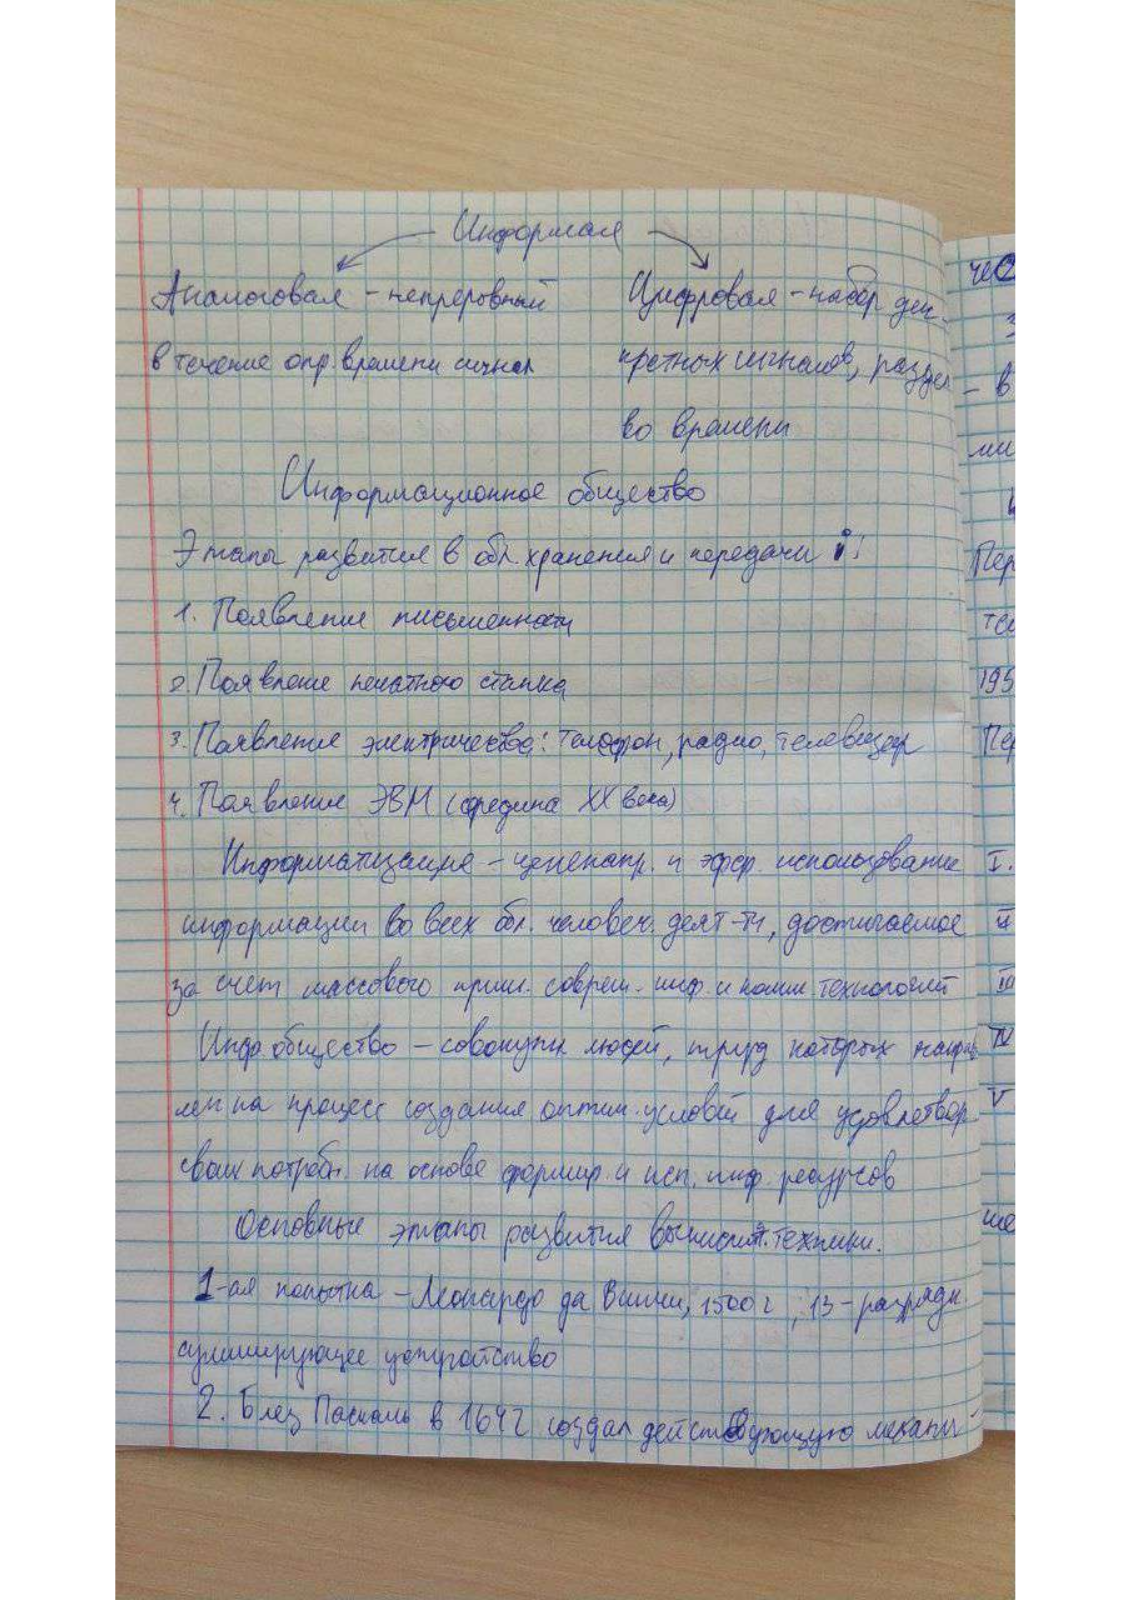 Информая
Аналоговая – непрерывный
Цифровая – набор дис-
в течение опр. времени сигнал
кретных сигналов, раздел
во времени
Информационное общество
Этапы развития в обл. хранения и передачи i:
1. Появление письменности
2. Появление печатного станка
3. Появление электричества: телефон, радио, телевидер
4. Появление ЭВМ (средина XX века)
Информатизация – целенапр. и эфф. использование
информации во всех обл. человеч. деят-ти, достигаемое
за счет массового прим. соврем. инф. и комм. технологий
Инфо. общество – совокупн. людей, труд которых направ
лен на процесс создания оптим. условий для удовлетвор.
своих потребн. на основе формир. и исп. инф. ресурсов
Основные этапы развития вычислит. техники.
1-ая попытка – Леонардо да Винчи, 1500 г, 13-разрядн.
суммирующее устройство
2. Блез Паскаль в 1642 создал действующую механи-
чес
– в
ми
Пер
195
Пер
I.
II
III
IV
V